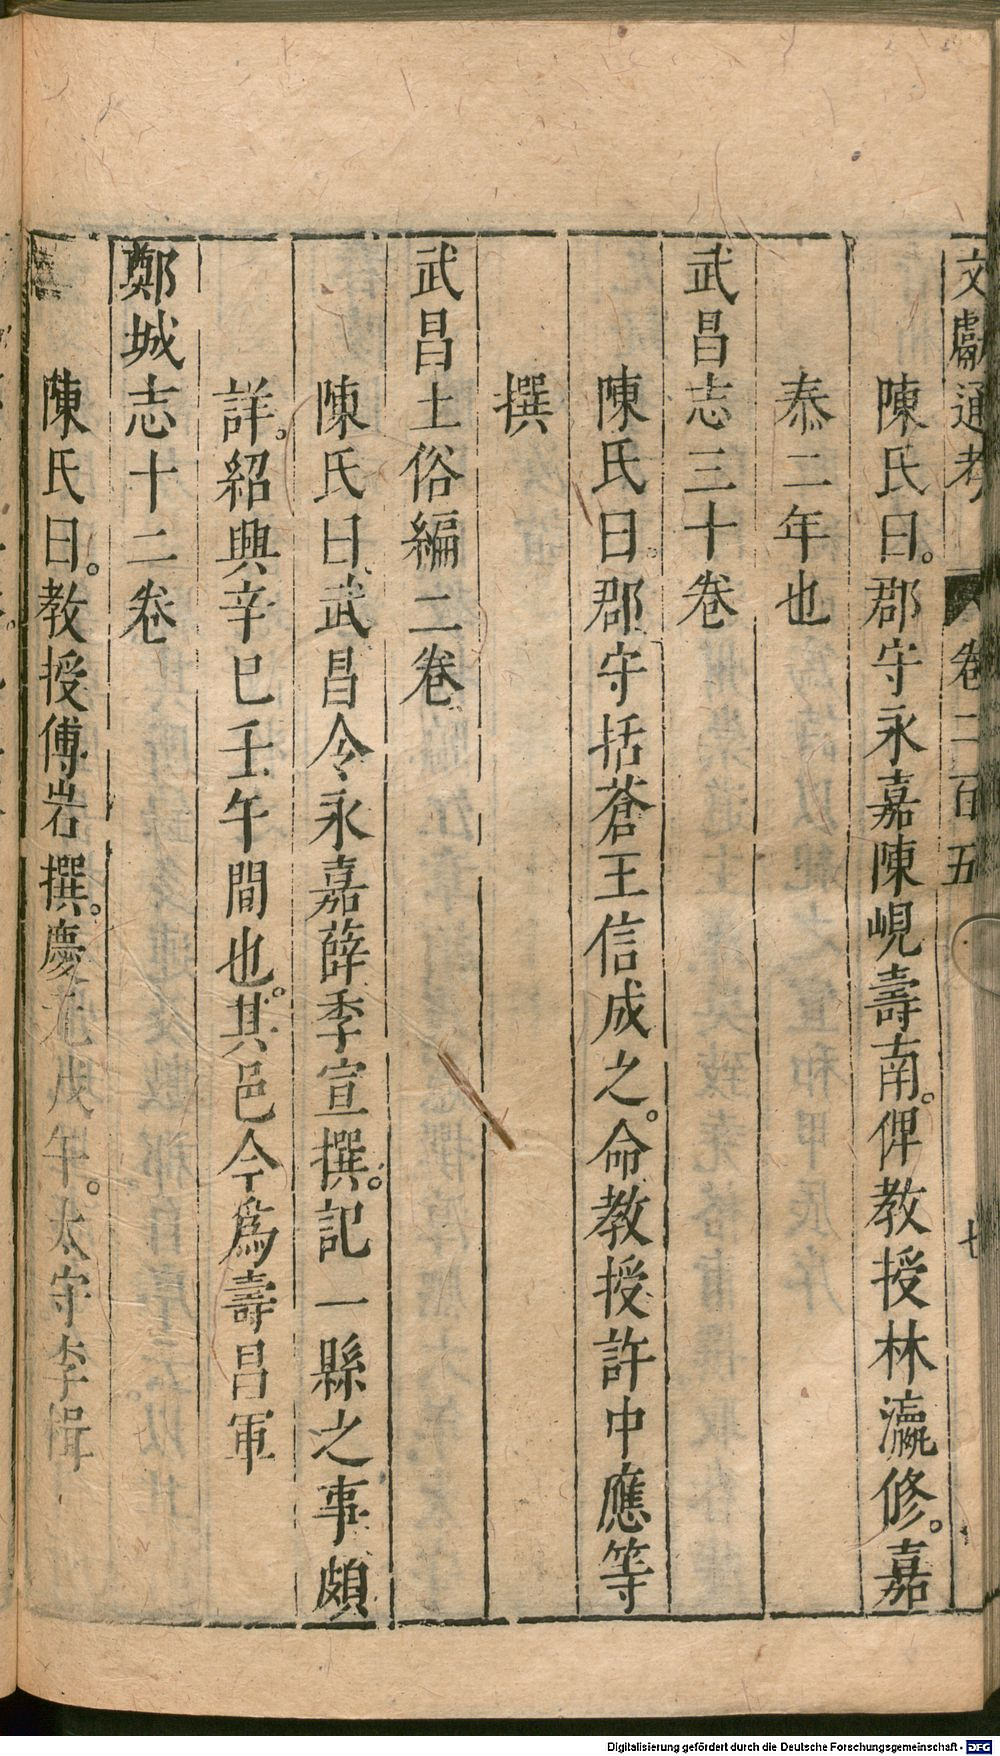 文獻通考 卷二百五 七
陳氏曰。郡守永嘉陳峴壽南。俾教授林瀛修。嘉
泰二年也
武昌志三十卷
陳氏曰。郡守括蒼王信成之。命教授許中應等
撰
武昌土俗編二卷
陳氏曰、武昌令永嘉薛季宣撰。記一縣之事頗
詳。紹興辛巳壬午間也。其邑今為壽昌軍
鄭城志十二卷
陳氏曰。教授傅岩撰。慶元戊年。太守李楫
Digitalisierung gefördert durch die Deutsche Forschungsgemeinschaft - DFG